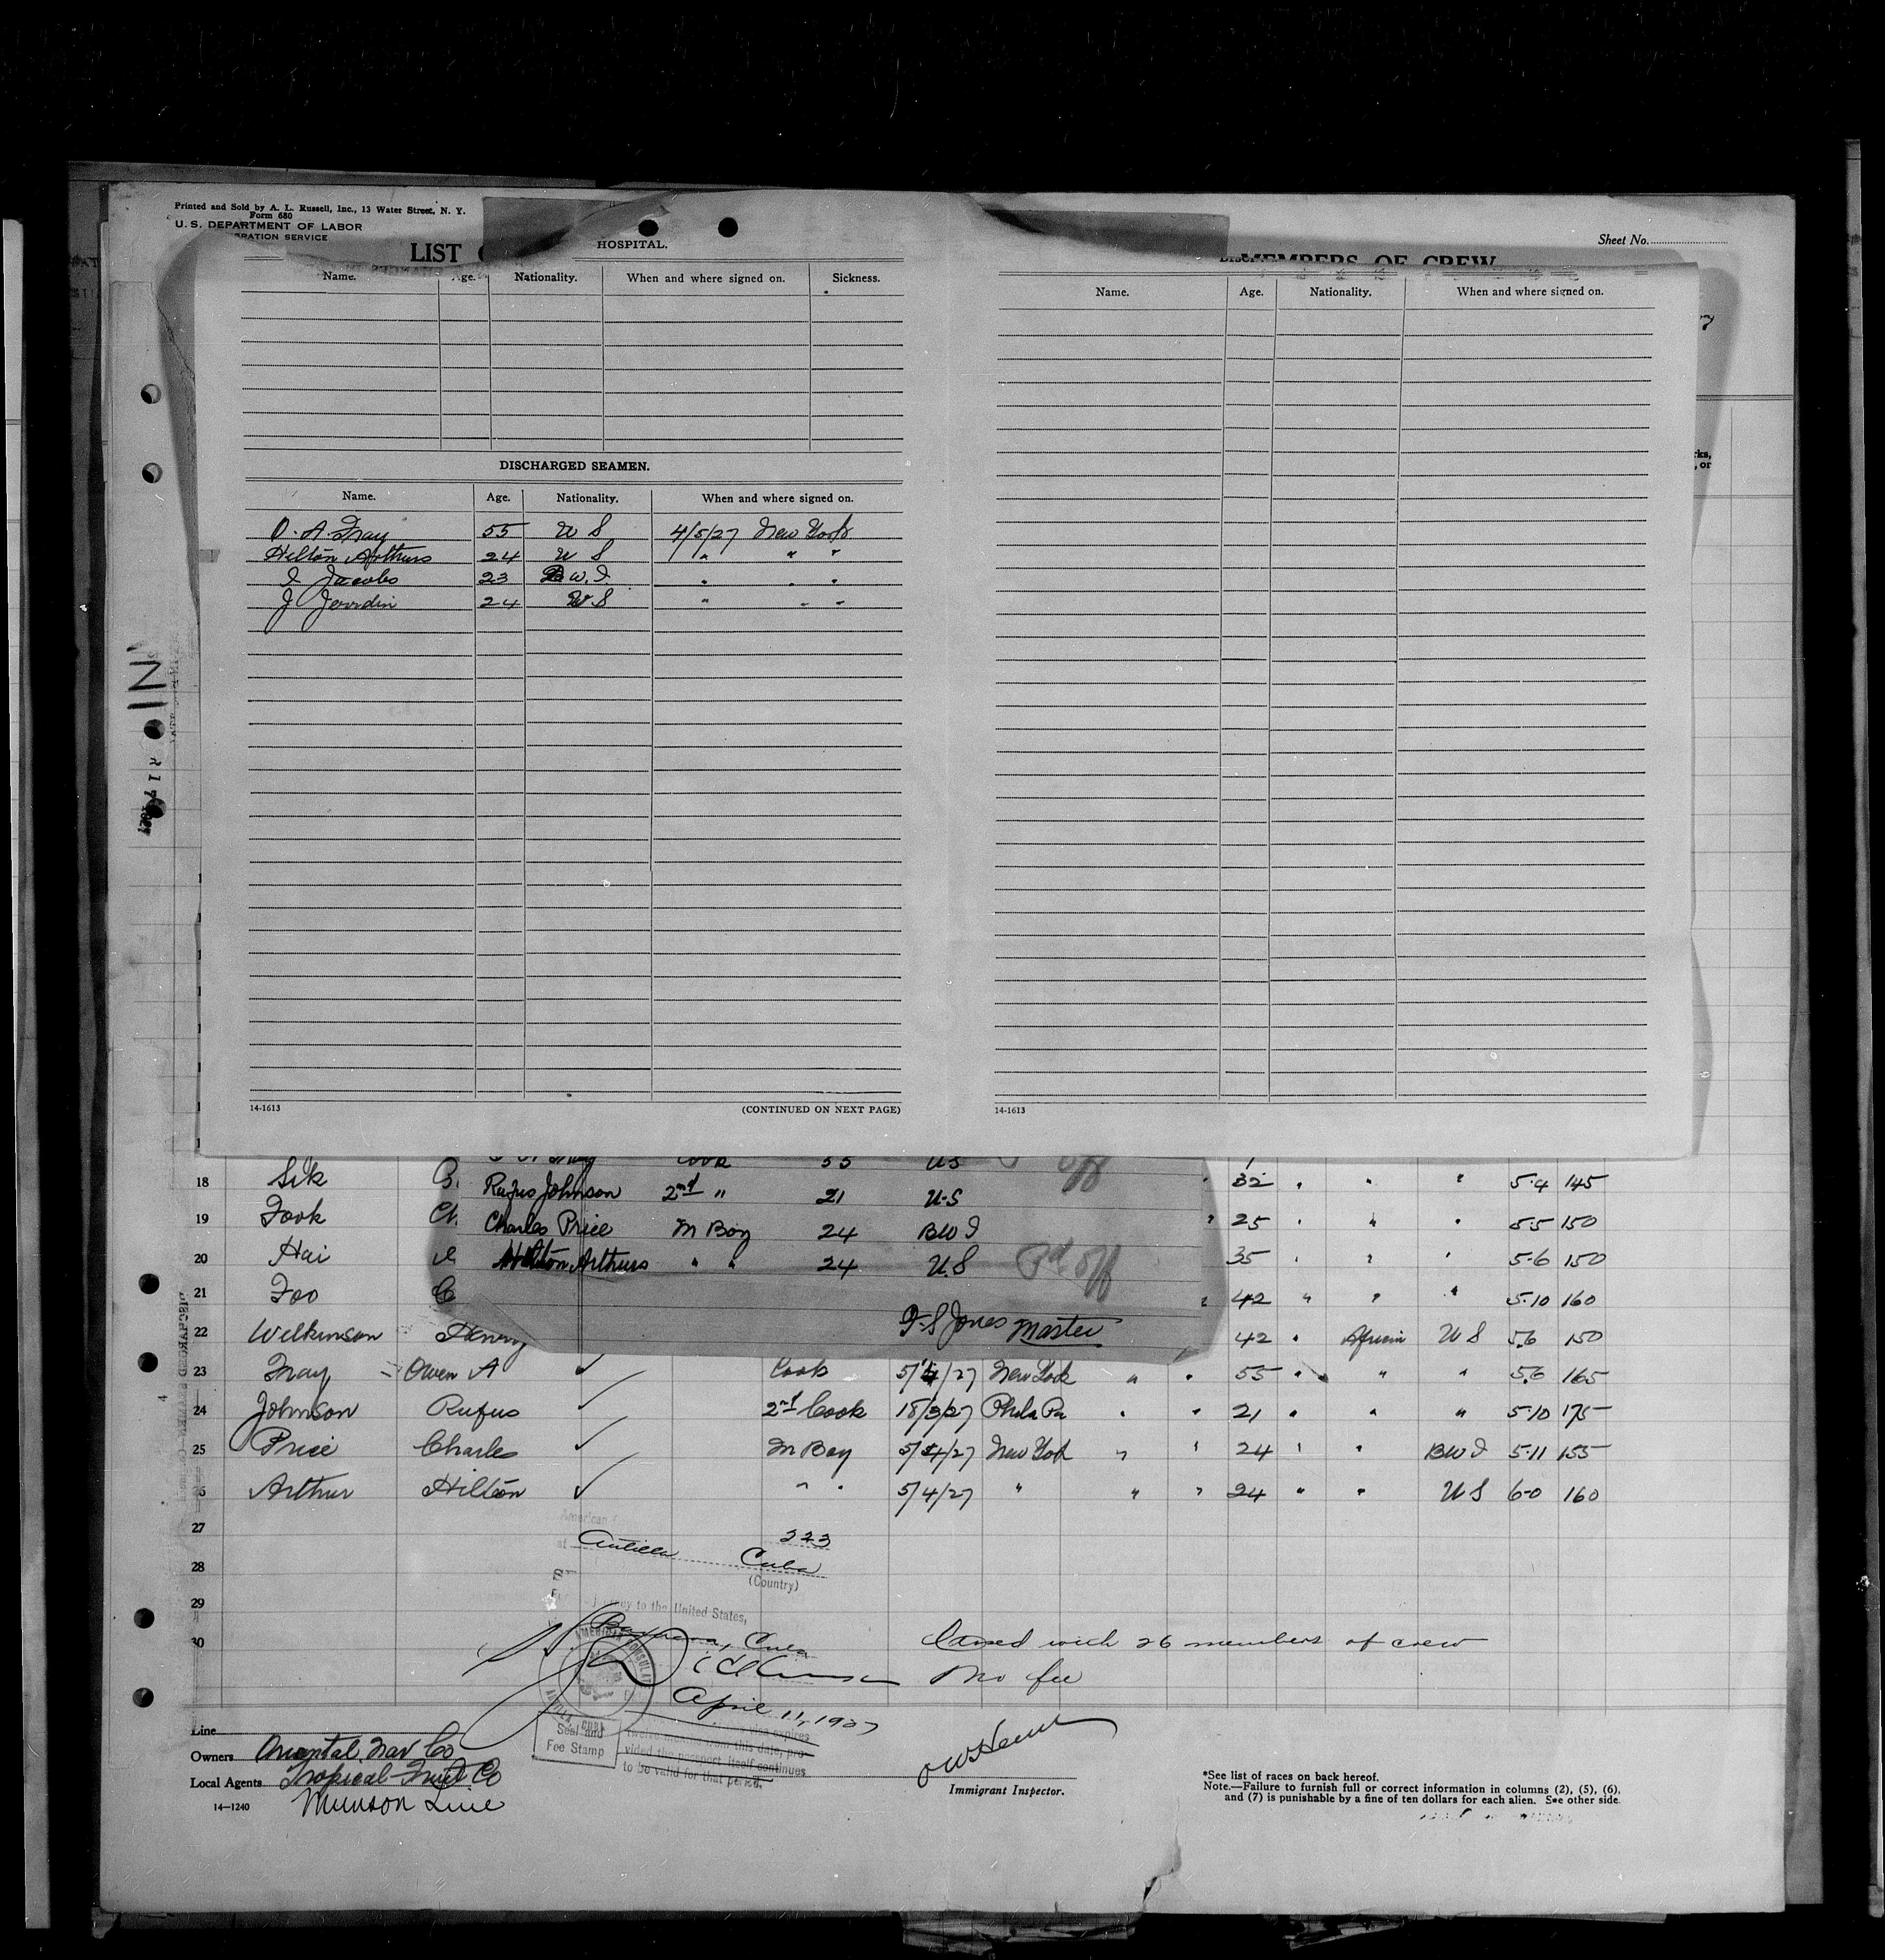 Printed and Sold by A. L. Russell, Inc., 13 Water Street, N. Y.
Form 680
U. S. DEPARTMENT OF LABOR
LIST
HOSPITAL.
Sheet No.
MEMBERS OF CREW
Name. Age. Nationality. When and where signed on. Sickness.
Name. Age. Nationality. When and where signed on.
DISCHARGED SEAMEN.
Name. Age. Nationality. When and where signed on.
O. A. Fray 55 U S 4/5/27 New York
Hilton Arthurs 24 U S " " "
I Jacobs 23 B W. I. " " "
J Jourdin 24 U S " " "
14-1613 (CONTINUED ON NEXT PAGE)
14-1613
Cook 55 US off
18 Sik 32 " " " 5.4 145
Rufus Johnson 2nd " 21 U-S
19 Fook 25 " " " 5.5 150
Charles Price M Boy 24 BW I
20 Hai 35 " " " 5.6 150
Hilton Arthurs " " 24 U.S Pd off
21 Foo 42 " " " 5.10 160
Jones Master
22 Wilkinson Henry 42 " African U S 5.6 150
23 Fray Owen A ✓ Cook 5/4/27 New York " " 55 " " " 5.6 165
24 Johnson Rufus ✓ 2nd Cook 18/3/27 Phila Pa " " 21 " " " 5.10 175
25 Price Charles ✓ M Boy 5/4/27 New York " " 24 " " BW I 5.11 155
26 Arthur Hilton ✓ " " 5/4/27 " " " 24 " " U S 6-0 160
27 American
223
at Antilla Cuba
28 (Country)
29 journey to the United States,
30 Cuba
with 26 members of crew
No fee
April 11, 1927
Seal and
Fee Stamp
visa expires
twelve months from this date, pro-
vided the passport itself continues
to be valid for that period.
Line
Owners Oriental Nav Co
Local Agents Tropical Fruit Co
Munson Line
14—1240
Immigrant Inspector.
*See list of races on back hereof.
Note.—Failure to furnish full or correct information in columns (2), (5), (6),
and (7) is punishable by a fine of ten dollars for each alien. See other side.